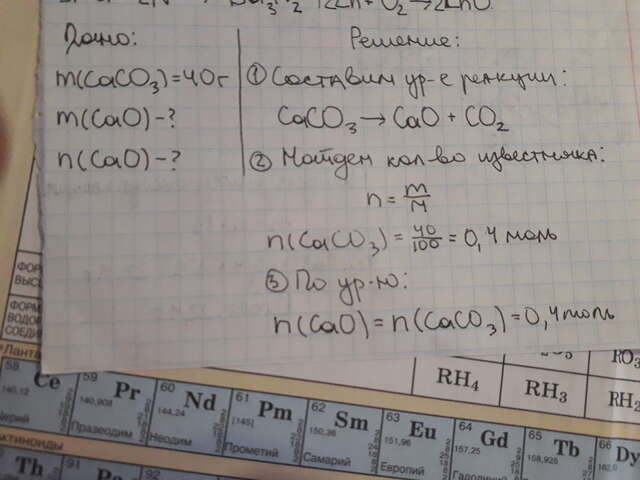 Дано:
m(CaCO₃)=40г
m(CaO)-?
n(CaO)-?
Решение:
① Составим ур-е реакции:
CaCO₃→CaO+CO₂
② Найдем кол-во известняка:
n=m/M
n(CaCO₃)=40/100=0,4 моль
③ По ур-ю:
n(CaO)=n(CaCO₃)=0,4моль
RO₃
RH₄ RH₃
58 Ce 140,12
59 Pr 140,908 Празеодим
60 Nd 144,24 Неодим
61 Pm [145] Прометий
62 Sm 150,36 Самарий
63 Eu 151,96 Европий
64 Gd 157,25
65 Tb 158,925
66 Dy
Th 91 Pa 92